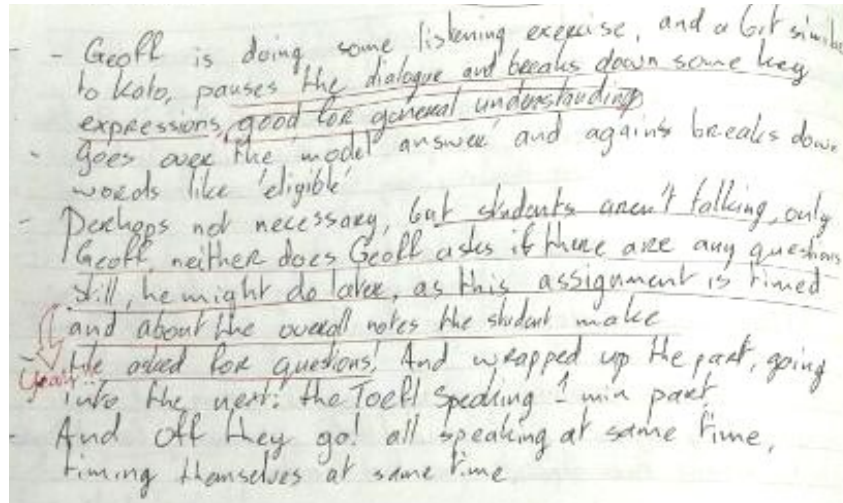 - Geoff is doing some listening exercise, and a bit similar
to Kolo, pauses the dialogue and breaks down some key
expressions, good for general understanding
- Goes over the 'model answer' and again's breaks down
words like 'eligible'
- Perhaps not necessary, but students aren't talking, only
Geoff, neither does Geoff asks if there are any questions
still, he might do later, as this assignment is timed
and about the overall notes the student make
- He asked for questions! And wrapped up the part, going
yeah!
into the next: the Toefl Speaking 1 min part
- And off they go! all speaking at same time,
timing themselves at same time